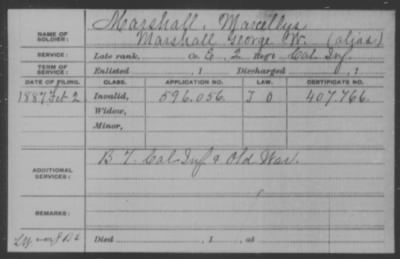 NAME OF SOLDIER: Marshall, Marcellus
Marshall George W. (alias)
SERVICE: Late rank, Co. G, 2 Reg't Cal. Inf.
TERM OF SERVICE: Enlisted 1 Discharged , 1
DATE OF FILING. CLASS. APPLICATION NO. LAW. CERTIFICATE NO.
1887 Feb 2 Invalid, 596.056. J O 407.766.
Widow,
Minor,
ADDITIONAL SERVICES: B 7. Cal Inf & Old War.
REMARKS:
Died , 1 , at